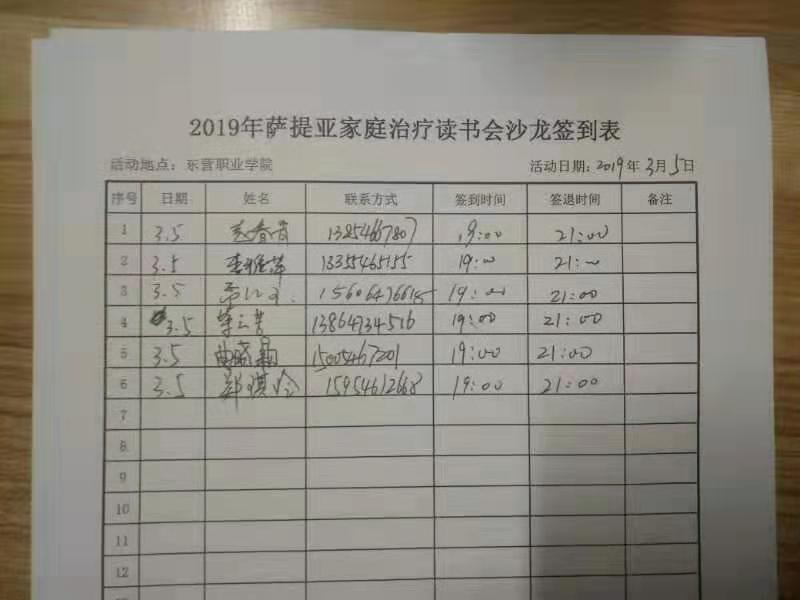 2019年萨提亚家庭治疗读书会沙龙签到表
活动地点：东营职业学院 活动日期：2019年3月5日
序号 日期 姓名 联系方式 签到时间 签退时间 备注
1 3.5 13854667807 19:00 21:00
2 3.5 13355465155 19:00 21:00
3 3.5 19:00 21:00
4 3.5 13864734516 19:00 21:00
5 3.5 曲晓颖 15005467201 19:00 21:00
6 3.5 郑琪玲 15954612668 19:00 21:00
7
8
9
10
11
12